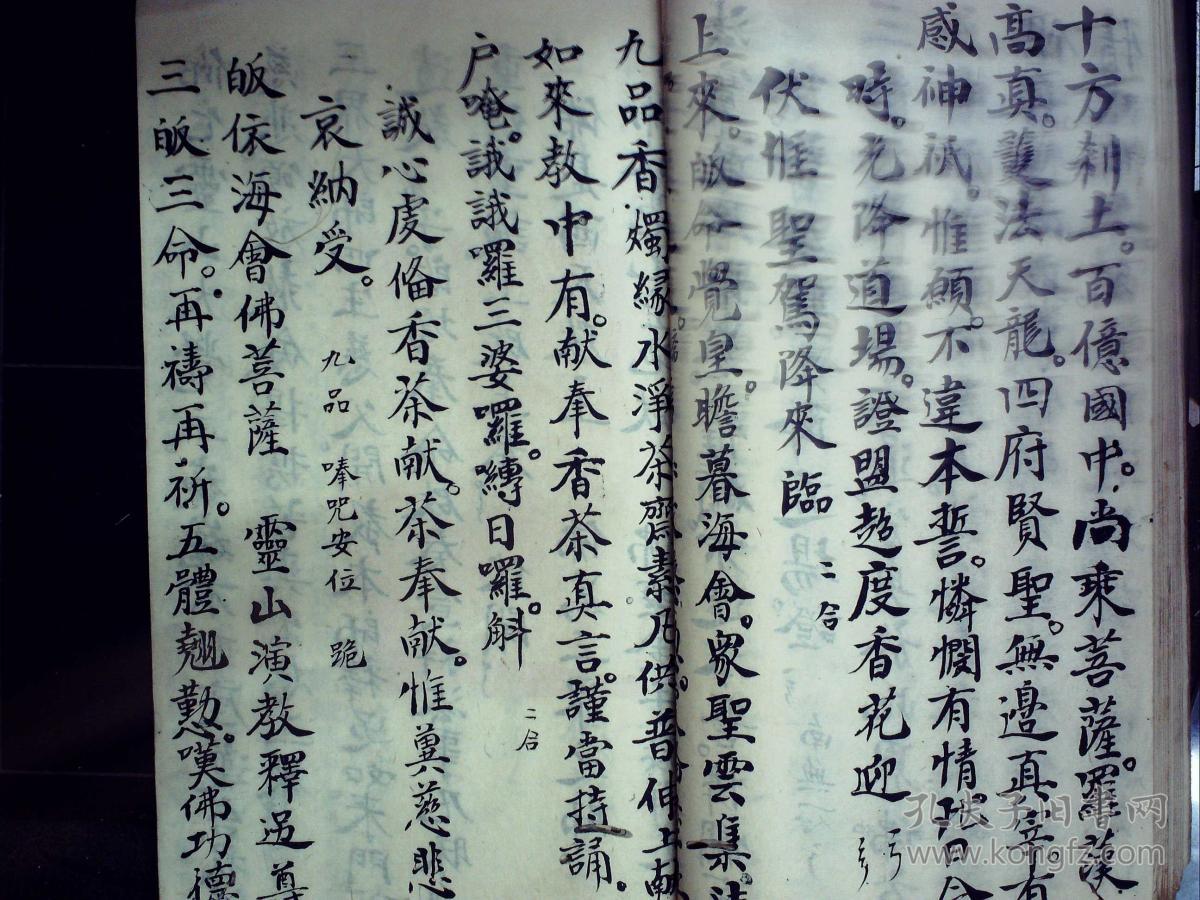 十方刹土。百億國中。尚乘菩薩。羅漢
高真。護法天龍。四府賢聖。無邊真宰。有
感神祇。惟願。不違本誓。憐憫有情。
時。光降道場。證盟超度香花迎
伏惟 聖駕降來臨 二合
上來。皈命覺皇。瞻暮海會。眾聖雲集。法
九品香燭緣水淨茶齋素乃供普伸上献
如來教中有。献奉香茶真言。謹當持誦。
户唵。誐誐囉三婆囉。嚩日囉。斛 二合
誠心虔俻香茶献。茶奉献。惟冀慈悲
哀納受。 九品 唪咒安位 跪
皈依海會佛菩薩 靈山演教釋迦尊
三皈三命。再禱再祈。五體翹懃。嘆佛功德
孔夫子旧书网
www.kongfz.com